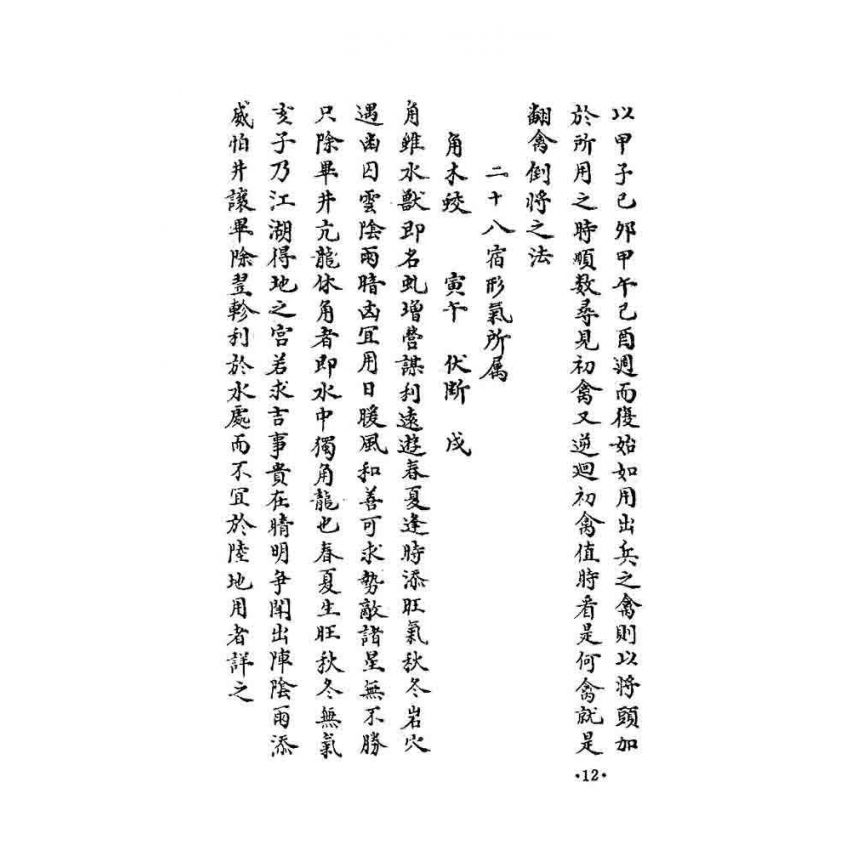 以甲子己夘甲午己酉週而復始如用出兵之禽則以将頭加
於所用之時順数尋見初禽又逆廻初禽值時看是何禽就是
翻禽倒将之法
二十八宿形氣所属
角木蛟 寅午 伏断 戌
角雖水獸即名虬增營謀利遠遊春夏逢時添旺氣秋冬岩穴
遇凾囚雲陰雨暗凾宜用日暖風和善可求勢敵諸星無不勝
只除畢井亢龍休角者即水中獨角龍也春夏生旺秋冬無氣
亥子乃江湖得地之宮若求吉事貴在晴明争鬪出陣陰雨添
威怕井讓畢除翌軫利於水處而不宜於陸地用者詳之
·12·